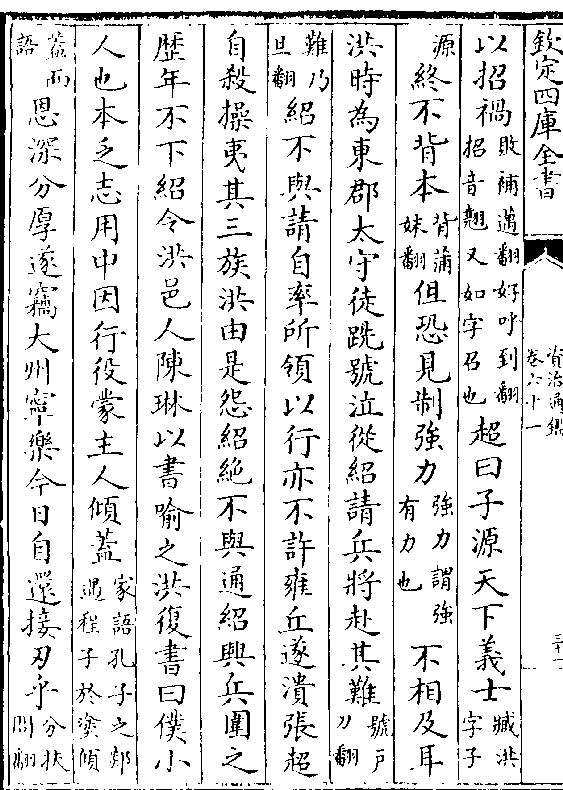 欽定四庫全書
資治通鑑
卷六十一
三十一
以招禍敗補邁翻好呼到翻招音翹又如字召也超曰子源天下義士臧洪字子
源終不背本背蒲妹翻但恐見制強力強力謂強有力也不相及耳
洪時為東郡太守徒跣號泣從紹請兵將赴其難號戶刀翻
難乃旦翻紹不與請自率所領以行亦不許雍丘遂潰張超
自殺操夷其三族洪由是怨紹絕不與通紹興兵圍之
歷年不下紹令洪邑人陳琳以書喻之洪復書曰僕小
人也本乏志用中因行役蒙主人傾蓋家語孔子之郯遇程子於塗傾
蓋而語恩深分厚遂竊大州寧樂今日自還接刃乎分扶問翻